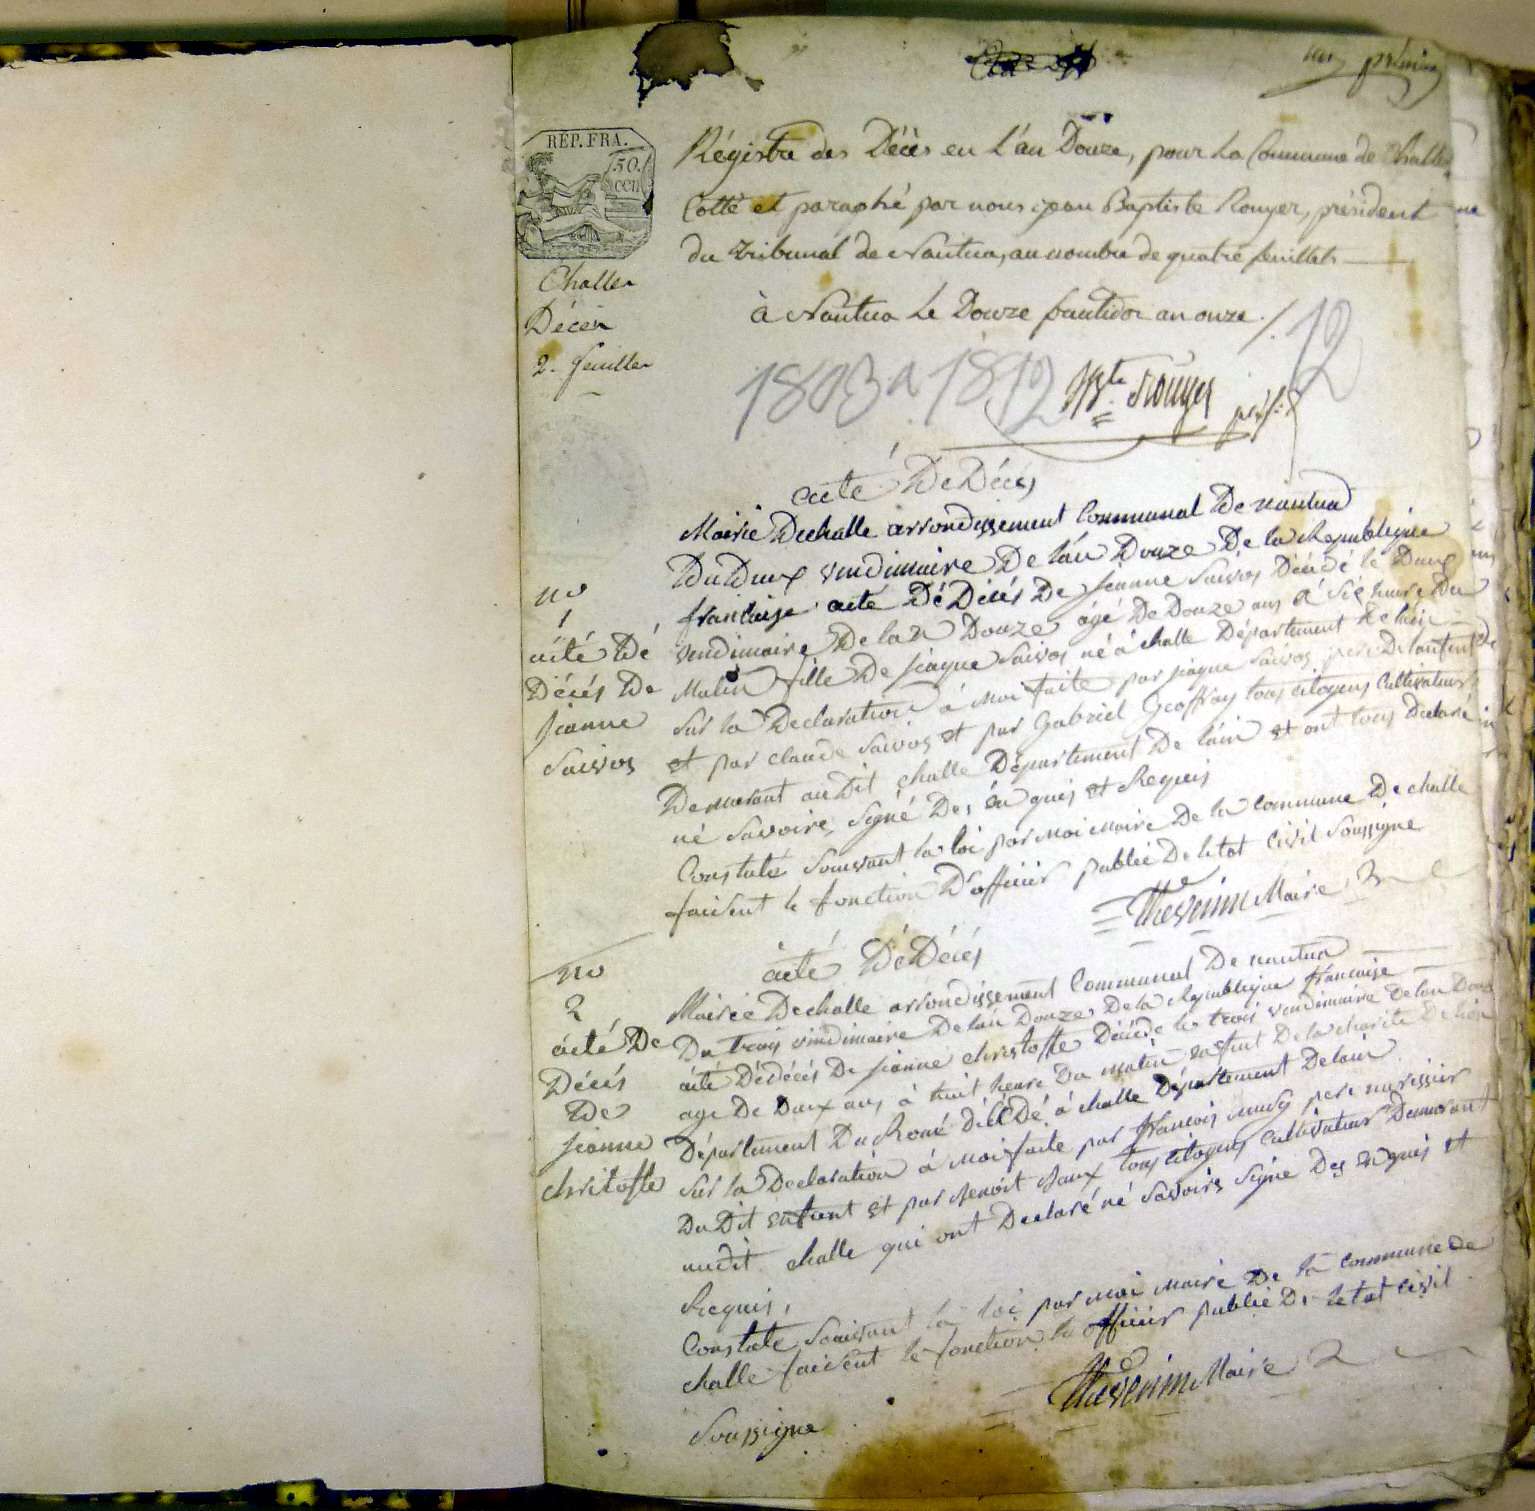 REP. FRA.
50.
CEN
Régistre des Décès en L'an Douze, pour La Commune de Challe
Cotté et paraphé par nous jean Baptiste Rouyer, président
du tribunal de Nantua, au nombre de quatre feuillets
à Nantua Le Douze fructidor an onze.
Challe
Décès
2. feuilles
1803 a 1812
12
Bte Rouyer
acte De Décès
Mairie De challe arrondissement Communal De nantua
Du Deux vendimaire De l'an Douze De la Republique
francaise acté Dé Décés De Jeanne Saivos Décédé le Deux
vendimaire De lan Douze agé De Douze ans á Sic heure Du
Matin fille De jiaque Saivos né á challe Département De lain
Sur la Declaration á Moi faite par jiaque Saivos pere De
et par claude Saivos et par Gabriel Geoffray tous citoyens Cultivateurs
Demurant audit challe Département De lain et ont tous Declaré
né Savoire, Signé De, en quis et Requis
Constaté Souivant la loi par Moi Maire De la Commune De challe
faisent le fonction D'officier public De letat Civil Soussigne
Thevenin Maire
no
1
acté Dé
Décés De
Jeanne
Saivos
acté Dé Décés
Mairie De challe arrondissement Communal De nantua
Du trois vindimaire De lan Douze De la Republique francaise
acté Dé décés De Jeanne christoffle Décéde le trois vendimaire De lan Douze
age De Deux ans, á huit heure Du Matin enfent De la charité De lion
Département Du Roné décédé á challe Département De lain
Sur la Declaration á Moi faite par francois pere nurissier
Du Dit enfent et par Benoit tous citoyens Cultivateur Demurant
audit challe qui ont Declaré né Savoire Signé De, en quis et
Requis,
Constate Souivant la loi par Moi Maire De la Commune De
challe faisent le fonction officier public De letat Civil
Soussigne
Thevenin Maire
no
2
acté De
Décés
De
Jeanne
christoffle